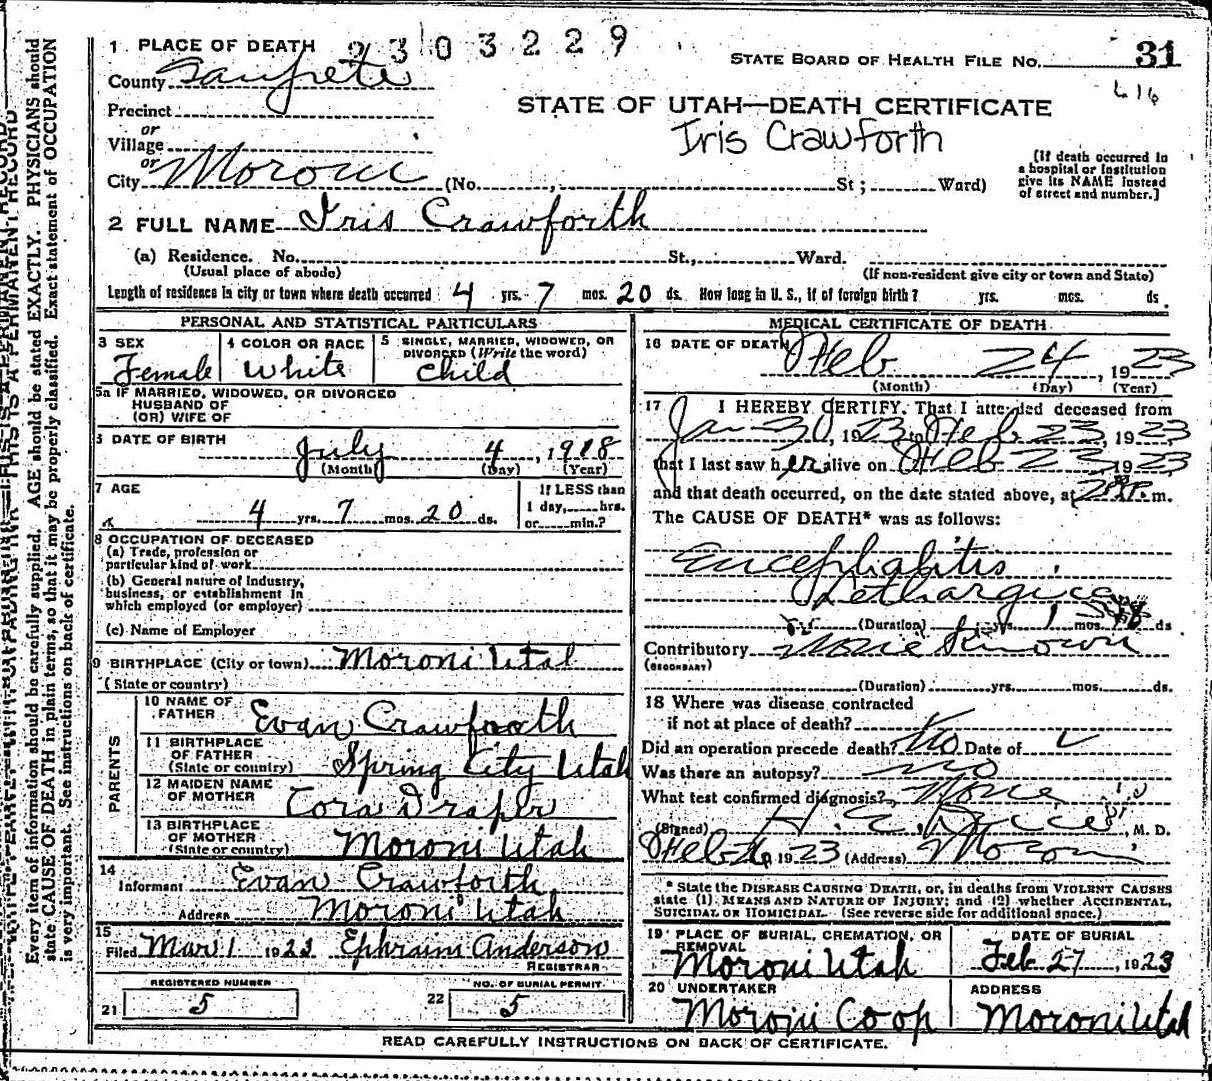 1 PLACE OF DEATH 2303229
STATE BOARD OF HEALTH FILE NO. 31
County Sanpete
616
Precinct
STATE OF UTAH—DEATH CERTIFICATE
or
Iris Crawforth
Village
or
City Moroni (No. , St; Ward)
(If death occurred in
a hospital or institution
give its NAME instead
of street and number.]
2 FULL NAME Iris Crawforth
(a) Residence. No. St., Ward.
(Usual place of abode) (If non-resident give city or town and State)
Length of residence in city or town where death occurred 4 yrs. 7 mos. 20 ds. How long in U. S., if of foreign birth? yrs. mos. ds.
PERSONAL AND STATISTICAL PARTICULARS
3 SEX
Female
4 COLOR OR RACE
White
5 SINGLE, MARRIED, WIDOWED, OR
DIVORCED (Write the word)
Child
5a IF MARRIED, WIDOWED, OR DIVORCED
HUSBAND OF
(OR) WIFE OF
DATE OF BIRTH
July 4, 1918
(Month) (Day) (Year)
7 AGE
4 yrs. 7 mos. 20 ds.
If LESS than
1 day, hrs.
or min.?
8 OCCUPATION OF DECEASED
(a) Trade, profession or
particular kind of work
(b) General nature of industry,
business, or establishment in
which employed (or employer)
(c) Name of Employer
9 BIRTHPLACE (City or town) Moroni Utah
(State or country)
PARENTS
10 NAME OF
FATHER Evan Crawforth
11 BIRTHPLACE
OF FATHER
(State or country) Spring City Utah
12 MAIDEN NAME
OF MOTHER Cora Draper
13 BIRTHPLACE
OF MOTHER
(State or country) Moroni Utah
14
Informant Evan Crawforth
Address Moroni Utah
15
Filed Mar 1 1923 Ephraim Anderson
REGISTRAR
REGISTERED NUMBER
21 5
NO. OF BURIAL PERMIT
22 5
MEDICAL CERTIFICATE OF DEATH
16 DATE OF DEATH
Feb 24, 1923
(Month) (Day) (Year)
17 I HEREBY CERTIFY, That I attended deceased from
Jan 30, 1923 to Feb 23, 1923
that I last saw her alive on Feb 23 1923
and that death occurred, on the date stated above, at m.
The CAUSE OF DEATH* was as follows:
Encephalitis
Lethargica
(Duration) yrs. 1 mos. ds
Contributory None Known
(SECONDARY)
(Duration) yrs. mos. ds.
18 Where was disease contracted
if not at place of death?
Did an operation precede death? No Date of
Was there an autopsy? no
What test confirmed diagnosis? None
(Signed) H. E. , M. D.
Feb 1923 (Address) Moroni
* State the DISEASE CAUSING DEATH, or, in deaths from VIOLENT CAUSES
state (1) MEANS AND NATURE OF INJURY; and (2) whether ACCIDENTAL,
SUICIDAL OR HOMICIDAL. (See reverse side for additional space.)
19 PLACE OF BURIAL, CREMATION, OR
REMOVAL
Moroni Utah
DATE OF BURIAL
Feb. 27, 1923
20 UNDERTAKER
Moroni Co op
ADDRESS
Moroni Utah
READ CAREFULLY INSTRUCTIONS ON BACK OF CERTIFICATE.
Every item of information should be carefully supplied. AGE should be stated EXACTLY. PHYSICIANS should
state CAUSE OF DEATH in plain terms, so that it may be properly classified. Exact statement of OCCUPATION
is very important. See instructions on back of certificate.